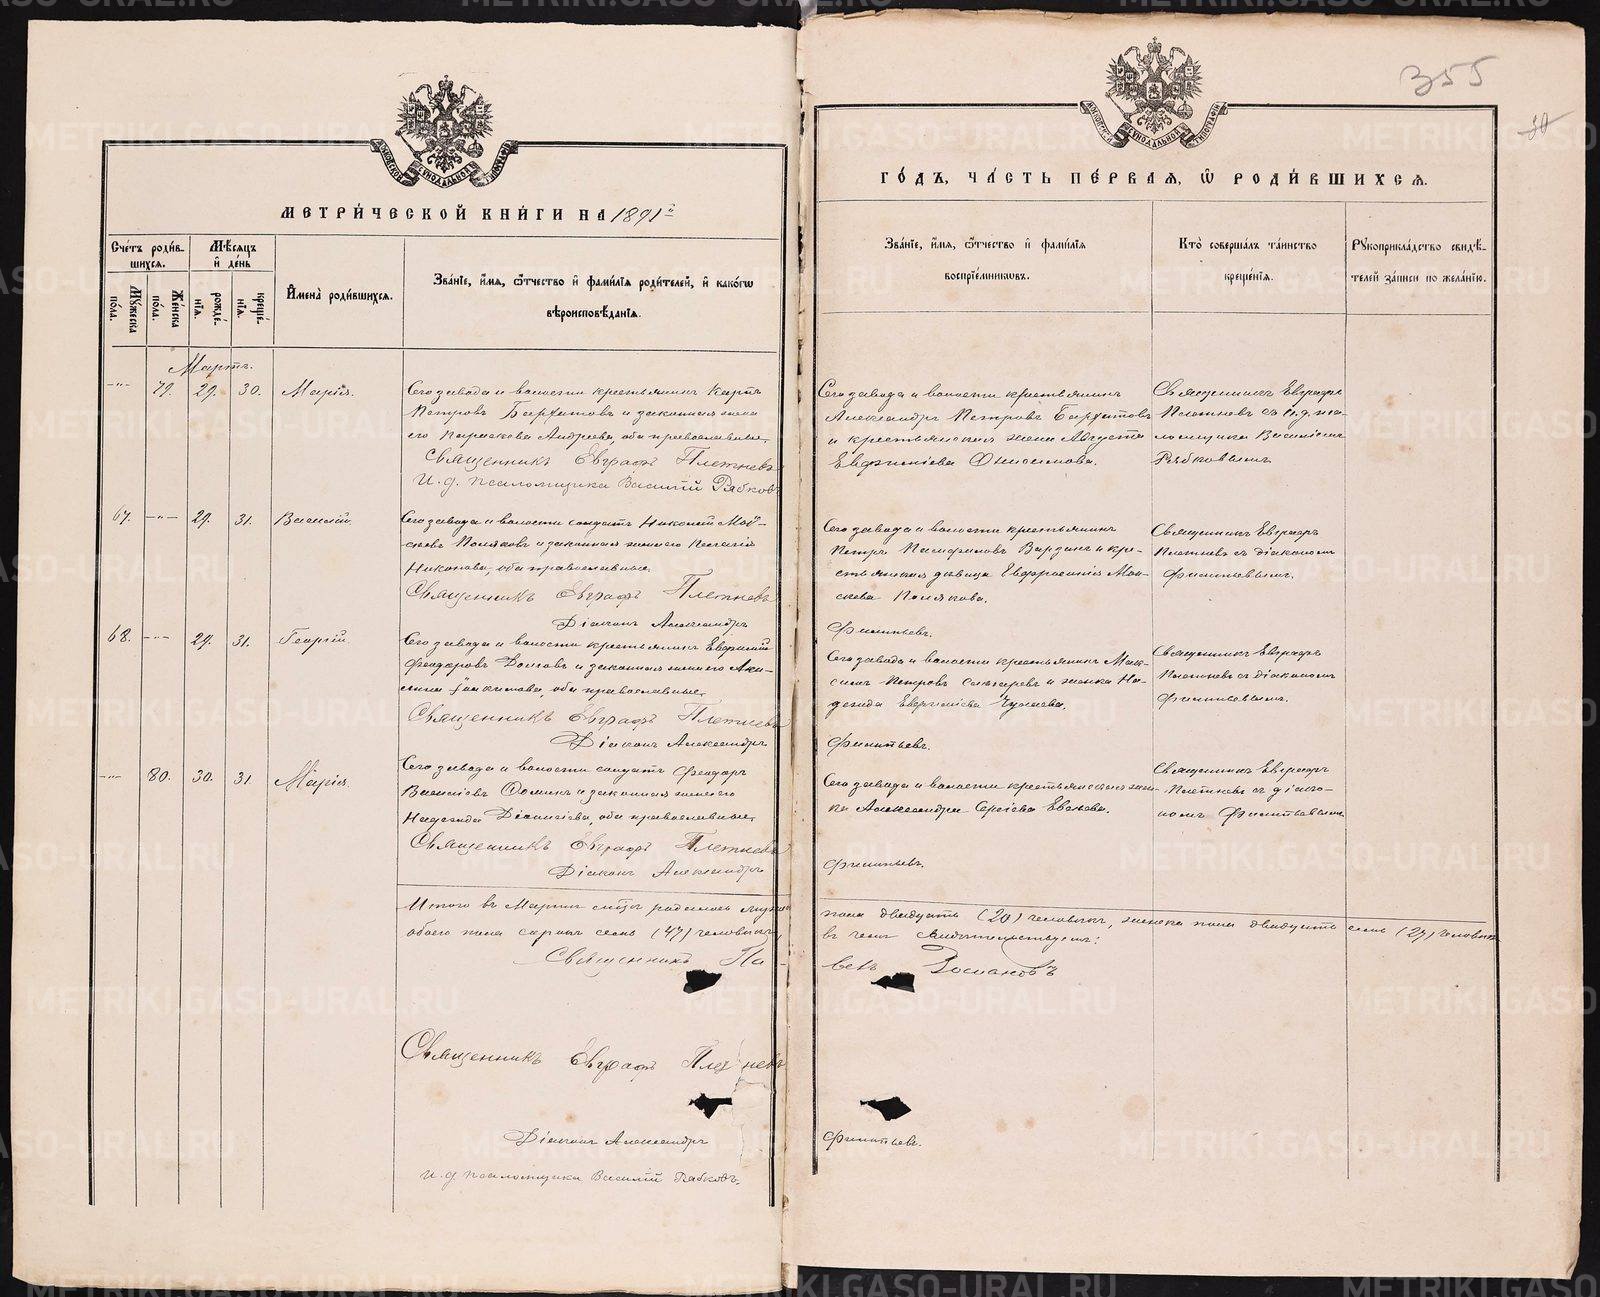 МЕТРИ́ЧЕСКОЙ КНИ́ГИ НА 1891й
ГО́ДЪ, ЧА́СТЬ ПЕ́РВАЯ, Ѡ РОДИ́ВШИХСЯ.
355
Сче́тъ роди́в-
шихся.
Мѣ́сяцъ
и҆ де́нь
Му́жеска
по́ла.
Же́нска
по́ла.
рожде́-
нїя.
креще́-
нїя.
И҆мена̀ роди́вшихся.
Зва́нїе, и҆́мя, ѻ҆́тчество и҆ фами́лїя роди́телей, и҆ како́гѡ
вѣроисповѣ́данїя.
Зва́нїе, и҆́мя, ѻ҆́тчество и҆ фами́лїя
воспрїе́мниковъ.
Кто̀ соверша́лъ та́инство
креще́нїя.
Рꙋкоприкла́дство свидѣ́-
телей за́писи по жела́нїю.
Мартъ.
79. 29. 30. Марія.
Сего завода и волости крестьянинъ Карпъ
Петровъ Бархатовъ и законная жена
его Параскева Андреева, оба православные.
Священникъ Евграфъ Плетневъ
И. д. псаломщика Василій Рябковъ
Сего завода и волости крестьянинъ
Александръ Петровъ Бархатовъ
и крестьянская жена Августа
Евфимиева Онисимова.
Священникъ Евграфъ
Плетневъ съ и. д. пса-
ломщика Василіемъ
Рябковымъ.
67. 29. 31. Василій.
Сего завода и волости солдатъ Николай Мои-
сеевъ Поляковъ и законная жена его Пелагія
Никонова, оба православные.
Священникъ Евграфъ Плетневъ
Діаконъ Александръ
Сего завода и волости крестьянинъ
Петръ и кре-
стьянская дѣвица Евфросинія Мои-
сеева Полякова.
Священникъ Евграфъ
Плетневъ съ діакономъ
Филитьевымъ.
Филитьевъ.
68. 29. 31. Георгій.
Сего завода и волости крестьянинъ Евфимій
Феодоровъ Долговъ и законная жена его Аки-
лина Іоакимова, оба православные.
Священникъ Евграфъ Плетневъ
Діаконъ Александръ
Сего завода и волости крестьянинъ Мак-
симъ Петровъ и женка На-
дежда
Священникъ Евграфъ
Плетневъ съ діакономъ
Филитьевымъ.
Филитьевъ.
80. 30. 31. Марія.
Сего завода и волости солдатъ Феодоръ
Васильевъ Фоминъ и законная жена его
Надежда Діонисіева, оба православные.
Священникъ Евграфъ Плетневъ
Діаконъ Александръ
Сего завода и волости крестьянская жен-
ка Александра Сергіева
Священникъ Евграфъ
Плетневъ съ діако-
номъ Филитьевымъ.
Филитьевъ.
Итого въ Мартѣ мѣсяцѣ родилось мужска
пола двадцать (20) человѣкъ, женска пола двадцать семь (27) человѣкъ
обоего пола сорокъ семь (47) человѣкъ,
въ чемъ свидѣтельствуемъ:
Священникъ Па-
велъ
Священникъ Евграфъ Плетневъ
Діаконъ Александръ
Филитьевъ.
И. д. псаломщика Василій Рябковъ.
METRIKI.GASO-URAL.RU